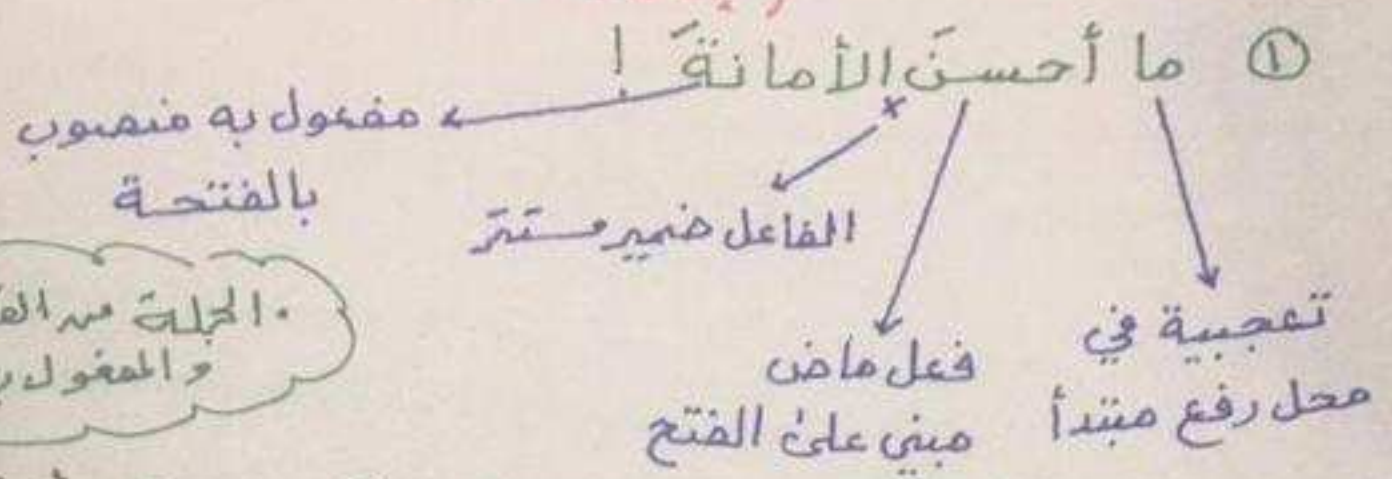 ① ما أحسنَ الأمانةَ !
مفعول به منصوب
بالفتحة
الفاعل ضمير مستتر
فعل ماض
مبني على الفتح
تعجبية في
محل رفع مبتدأ
الجملة من
والمفعول